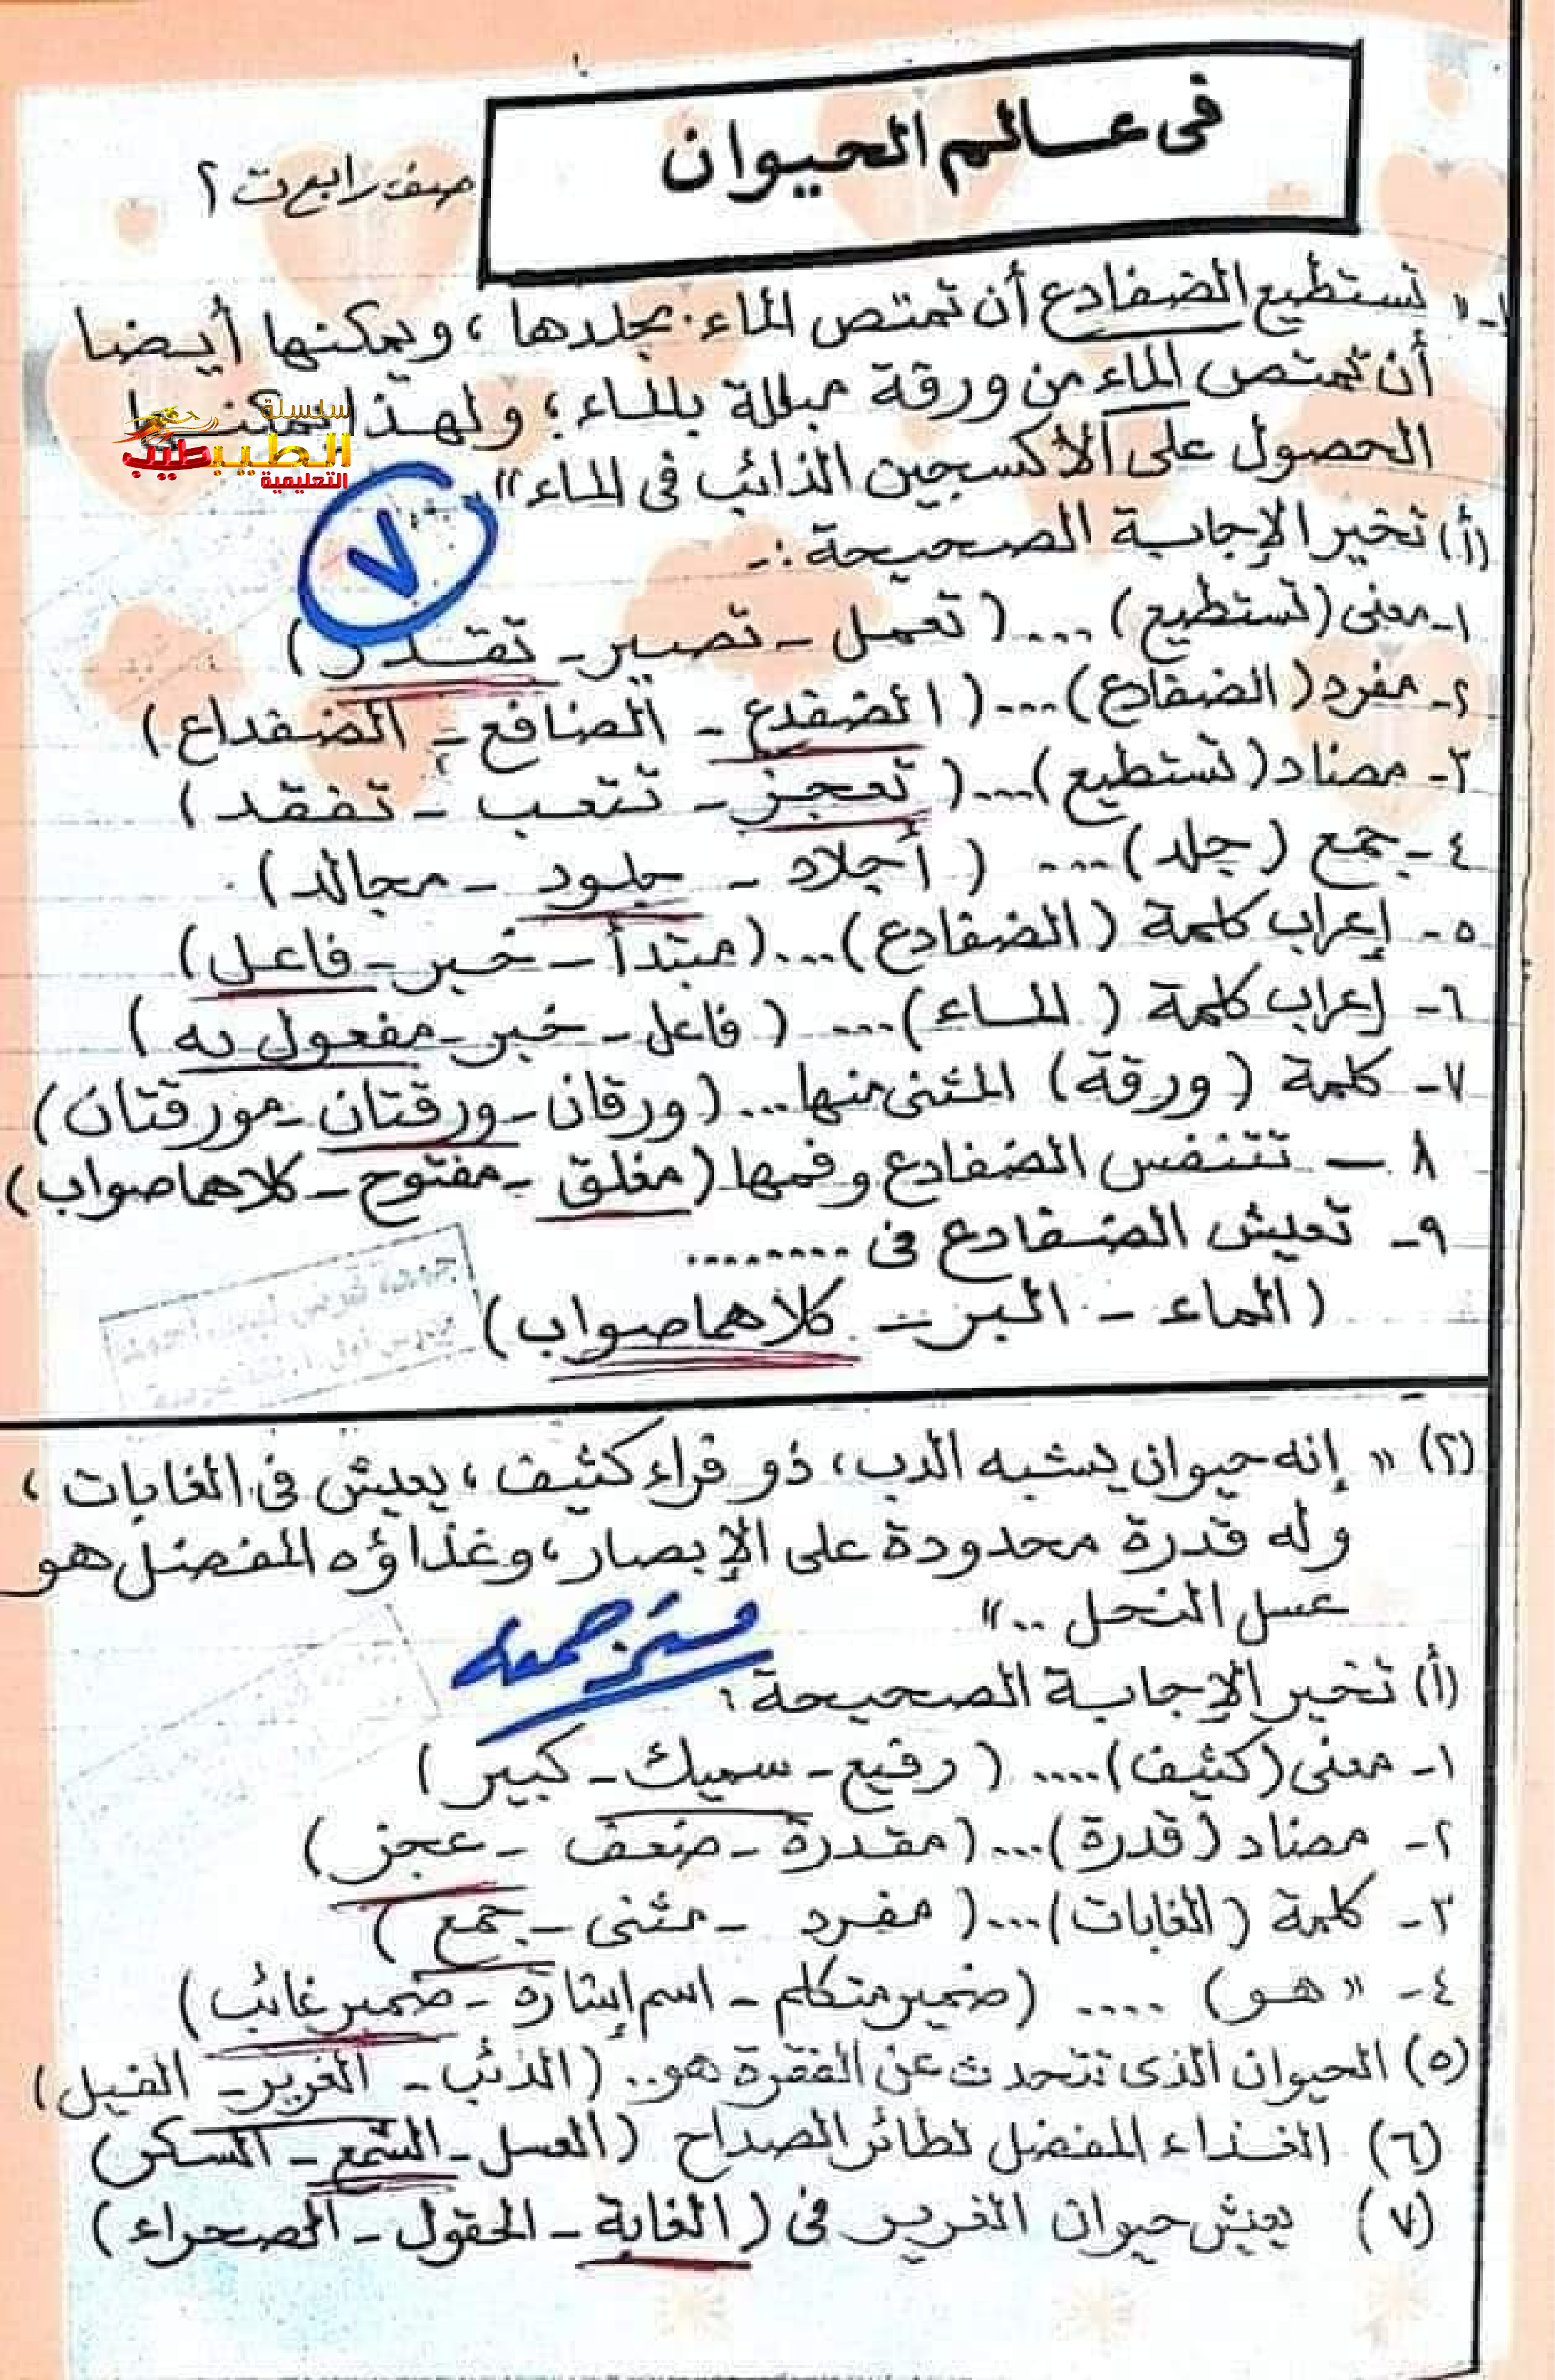 فى عالم الحيوان
صف رابع ت ٢
١- « تستطيع الضفادع أن تمتص الماء بجلدها ، ويمكنها أيضا
أن تمتص الماء من ورقة مبللة بالماء ؛ ولهذا يمكنها
سلسلة
الطيب طيب
التعليمية
الحصول على الأكسجين الذائب فى الماء »
٧
(أ) تخير الإجابة الصحيحة :-
١- معنى (تستطيع) .... ( تعمل - تصير - تقدر )
٢- مفرد ( الضفادع ) .... ( الضفدع - الضنافع - الضفداع )
٣- مضاد ( تستطيع ) .... ( تعجز - تتعب - تفقد )
٤- جمع ( جلد ) .... ( أجلاد - جلود - مجالد ) .
٥- إعراب كلمة ( الضفادع ) .... ( مبتدأ - خبر - فاعل )
٦- إعراب كلمة ( الماء ) .... ( فاعل - خبر - مفعول به )
٧- كلمة ( ورقة ) المثنى منها ... ( ورقان - ورقتان - مورقتان )
٨ - تتنفس الضفادع وفمها ( مغلق - مفتوح - كلاهما صواب )
٩- تعيش الضفادع فى .........
( الماء - البر - كلاهما صواب )
(٢) « إنه حيوان يشبه الدب ، ذو فراء كثيف ، يعيش فى الغابات ،
وله قدرة محدودة على الإبصار ، وغذاؤه المفضل هو
عسل النحل .. »
مستر جمعه
(أ) تخير الإجابة الصحيحة :
١- معنى (كثيف) .... ( رفيع - سميك - كبير )
٢- مضاد ( قدرة ) .... ( مقدرة - ضعف - عجز )
٣- كلمة ( الغابات ) .... ( مفرد - مثنى - جمع )
٤- « هو ) .... ( ضمير متكلم - اسم إشارة - ضمير غائب )
(٥) الحيوان الذى تتحدث عن الفقرة هو .. ( الذئب - الغرير - الفيل )
(٦) الغذاء المفضل لطائر الصداح ( العسل - الشمع - السكر )
(٧) يعيش حيوان الغرير فى ( الغابة - الحقول - الصحراء )